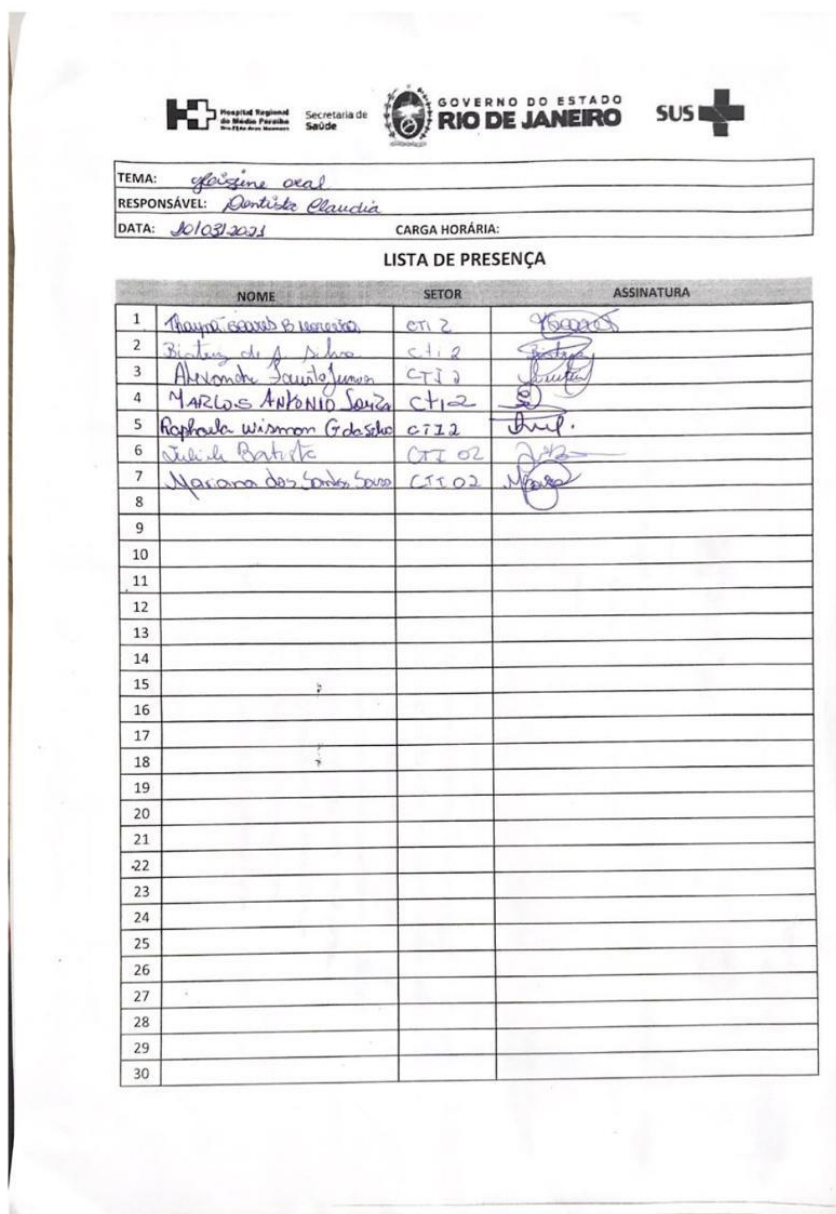 Hospital Regional
do Médio Paraíba
Secretaria de
Saúde
GOVERNO DO ESTADO
RIO DE JANEIRO
SUS
TEMA: Higiene oral
RESPONSÁVEL: Dentista Claudia
DATA: 10/03/2021 CARGA HORÁRIA:
LISTA DE PRESENÇA
NOME SETOR ASSINATURA
1 Thayná Soares B cti 2
2 Beatriz de A. Silva cti 2
3 Alexandre Junior CTI 2
4 MARCOS ANTONIO Souza Cti 2
5 Raphaela Wismon G da Silva CTI 2
6 Batista CTI 02
7 Mariana dos Santos Souza CTI 02
8
9
10
11
12
13
14
15
16
17
18
19
20
21
22
23
24
25
26
27
28
29
30